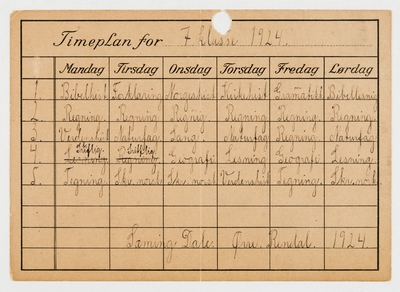 Timeplan for 7 klasse 1924.
Mandag Tirsdag Onsdag Torsdag Fredag Lørdag
1. Bibelhist. Forklaring Norgeshist. Kirkehist. Bibellesning
2. Regning. Regning Regnig. Regning Regning. Regning.
3. Verdenshist. Naturfag. Sang. Naturfag Regning. Naturfag.
4. Skriftlig. Skriftlig. Geografi Lesning Geografi Lesning.
5. Tegning. Skr. norsk Skr. norsk Verdenshist. Tegning. Skr. norsk
Dale. Øvre. Rendal. 1924.